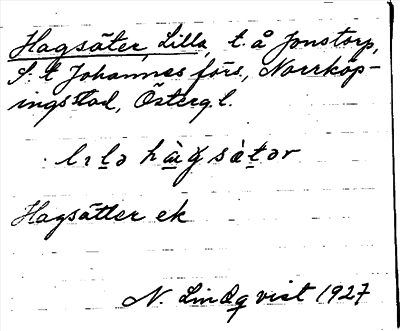 Hagsäter, Lilla, t. å Jonstorp,
S:t Johannes förs., Norrköp-
ingsstad, Östergl.
lɪlə hàgsætər
Hagsätter ek
N. Lindqvist 1927